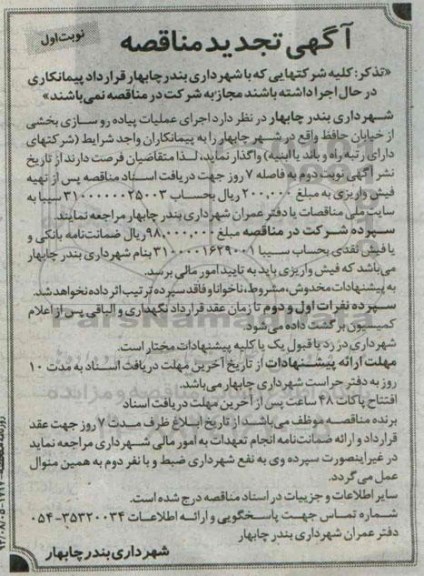 آگهی تجدید مناقصه
نوبت اول
«تذکر: کلیه شرکتهایی که با شهرداری بندر چابهار قرارداد پیمانکاری
در حال اجرا داشته باشند مجاز به شرکت در مناقصه نمی‌باشند»
شهرداری بندر چابهار در نظر دارد اجرای عملیات پیاده رو سازی بخشی
از خیابان حافظ واقع در شهر چابهار را به پیمانکاران واجد شرایط (شرکتهای
دارای رتبه راه و باند یا ابنیه) واگذار نماید، لذا متقاضیان فرصت دارند از تاریخ
نشر آگهی نوبت دوم به فاصله ۷ روز جهت دریافت اسناد مناقصه پس از تهیه
فیش واریزی به مبلغ ۲۰۰,۰۰۰ ریال بحساب ۳۱۰۰۰۰۰۰۲۵۰۰۳ سیبا به
سایت ملی مناقصات یا دفتر عمران شهرداری بندر چابهار مراجعه نمایند.
سپرده شرکت در مناقصه مبلغ ۹۸,۰۰۰,۰۰۰ ریال ضمانت‌نامه بانکی و
یا فیش نقدی بحساب سیبا ۳۱۰۰۰۰۱۶۲۹۰۰۱ بنام شهرداری بندر چابهار
می‌باشد که فیش واریزی باید به تایید امور مالی برسد.
به پیشنهادات مخدوش، مشروط، ناخوانا و فاقد سپرده ترتیب اثر داده نخواهد شد.
سپرده نفرات اول و دوم تا زمان عقد قرارداد نگهداری و الباقی پس از اعلام
کمیسیون برگشت داده می‌شود.
شهرداری در رد یا قبول یک یا کلیه پیشنهادات مختار است.
مهلت ارائه پیشنهادات از تاریخ آخرین مهلت دریافت اسناد به مدت ۱۰
روز به دفتر حراست شهرداری چابهار می‌باشد.
افتتاح پاکات ۴۸ ساعت پس از آخرین مهلت دریافت اسناد
برنده مناقصه موظف می‌باشد از تاریخ ابلاغ ظرف مدت ۷ روز جهت عقد
قرارداد و ارائه ضمانت‌نامه انجام تعهدات به امور مالی شهرداری مراجعه نماید
در غیر اینصورت سپرده وی به نفع شهرداری ضبط و با نفر دوم به همین منوال
عمل می گردد.
سایر اطلاعات و جزییات در اسناد مناقصه درج شده است.
شماره تماس جهت پاسخگویی و ارائه اطلاعات ۳۵۳۲۰۰۳۴-۰۵۴
دفتر عمران شهرداری بندر چابهار
شهرداری بندر چابهار
ParsNamadData